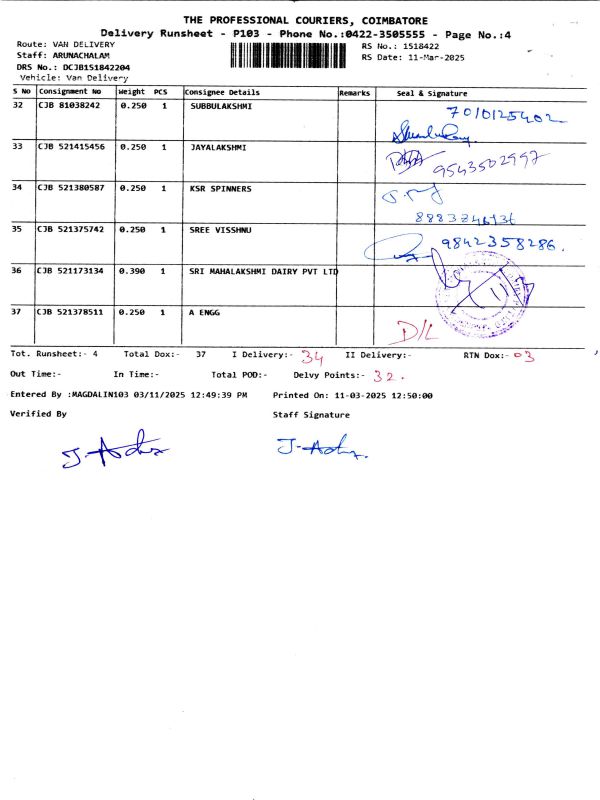 THE PROFESSIONAL COURIERS, COIMBATORE
Delivery Runsheet - P103 - Phone No.:0422-3505555 - Page No.:4
Route: VAN DELIVERY
RS No.: 1518422
Staff: ARUNACHALAM
RS Date: 11-Mar-2025
DRS No.: DCJB151842204
Vehicle: Van Delivery
S No Consignment No Weight PCS Consignee Details Remarks Seal & Signature
32 CJB 81038242 0.250 1 SUBBULAKSHMI 7010125402
33 CJB 521415456 0.250 1 JAYALAKSHMI 9543502997
34 CJB 521380587 0.250 1 KSR SPINNERS
8883246936
35 CJB 521375742 0.250 1 SREE VISSHNU 9842358286.
36 CJB 521173134 0.390 1 SRI MAHALAKSHMI DAIRY PVT LTD
37 CJB 521378511 0.250 1 A ENGG D/L
Tot. Runsheet:- 4 Total Dox:- 37 I Delivery:- 34 II Delivery:- RTN Dox:- 03
Out Time:- In Time:- Total POD:- Delvy Points:- 32.
Entered By :MAGDALIN103 03/11/2025 12:49:39 PM Printed On: 11-03-2025 12:50:00
Verified By Staff Signature